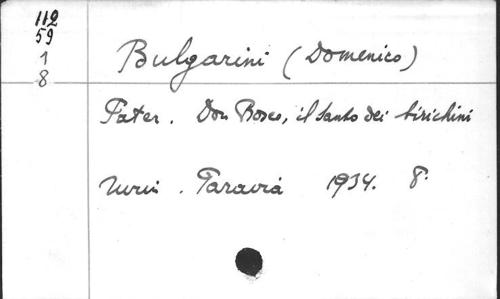 112
59
1
8
Bulgarini (Domenico)
Pater. Don Bosco, il Santo dei birichini
Turin. Paravia 1934. 8.